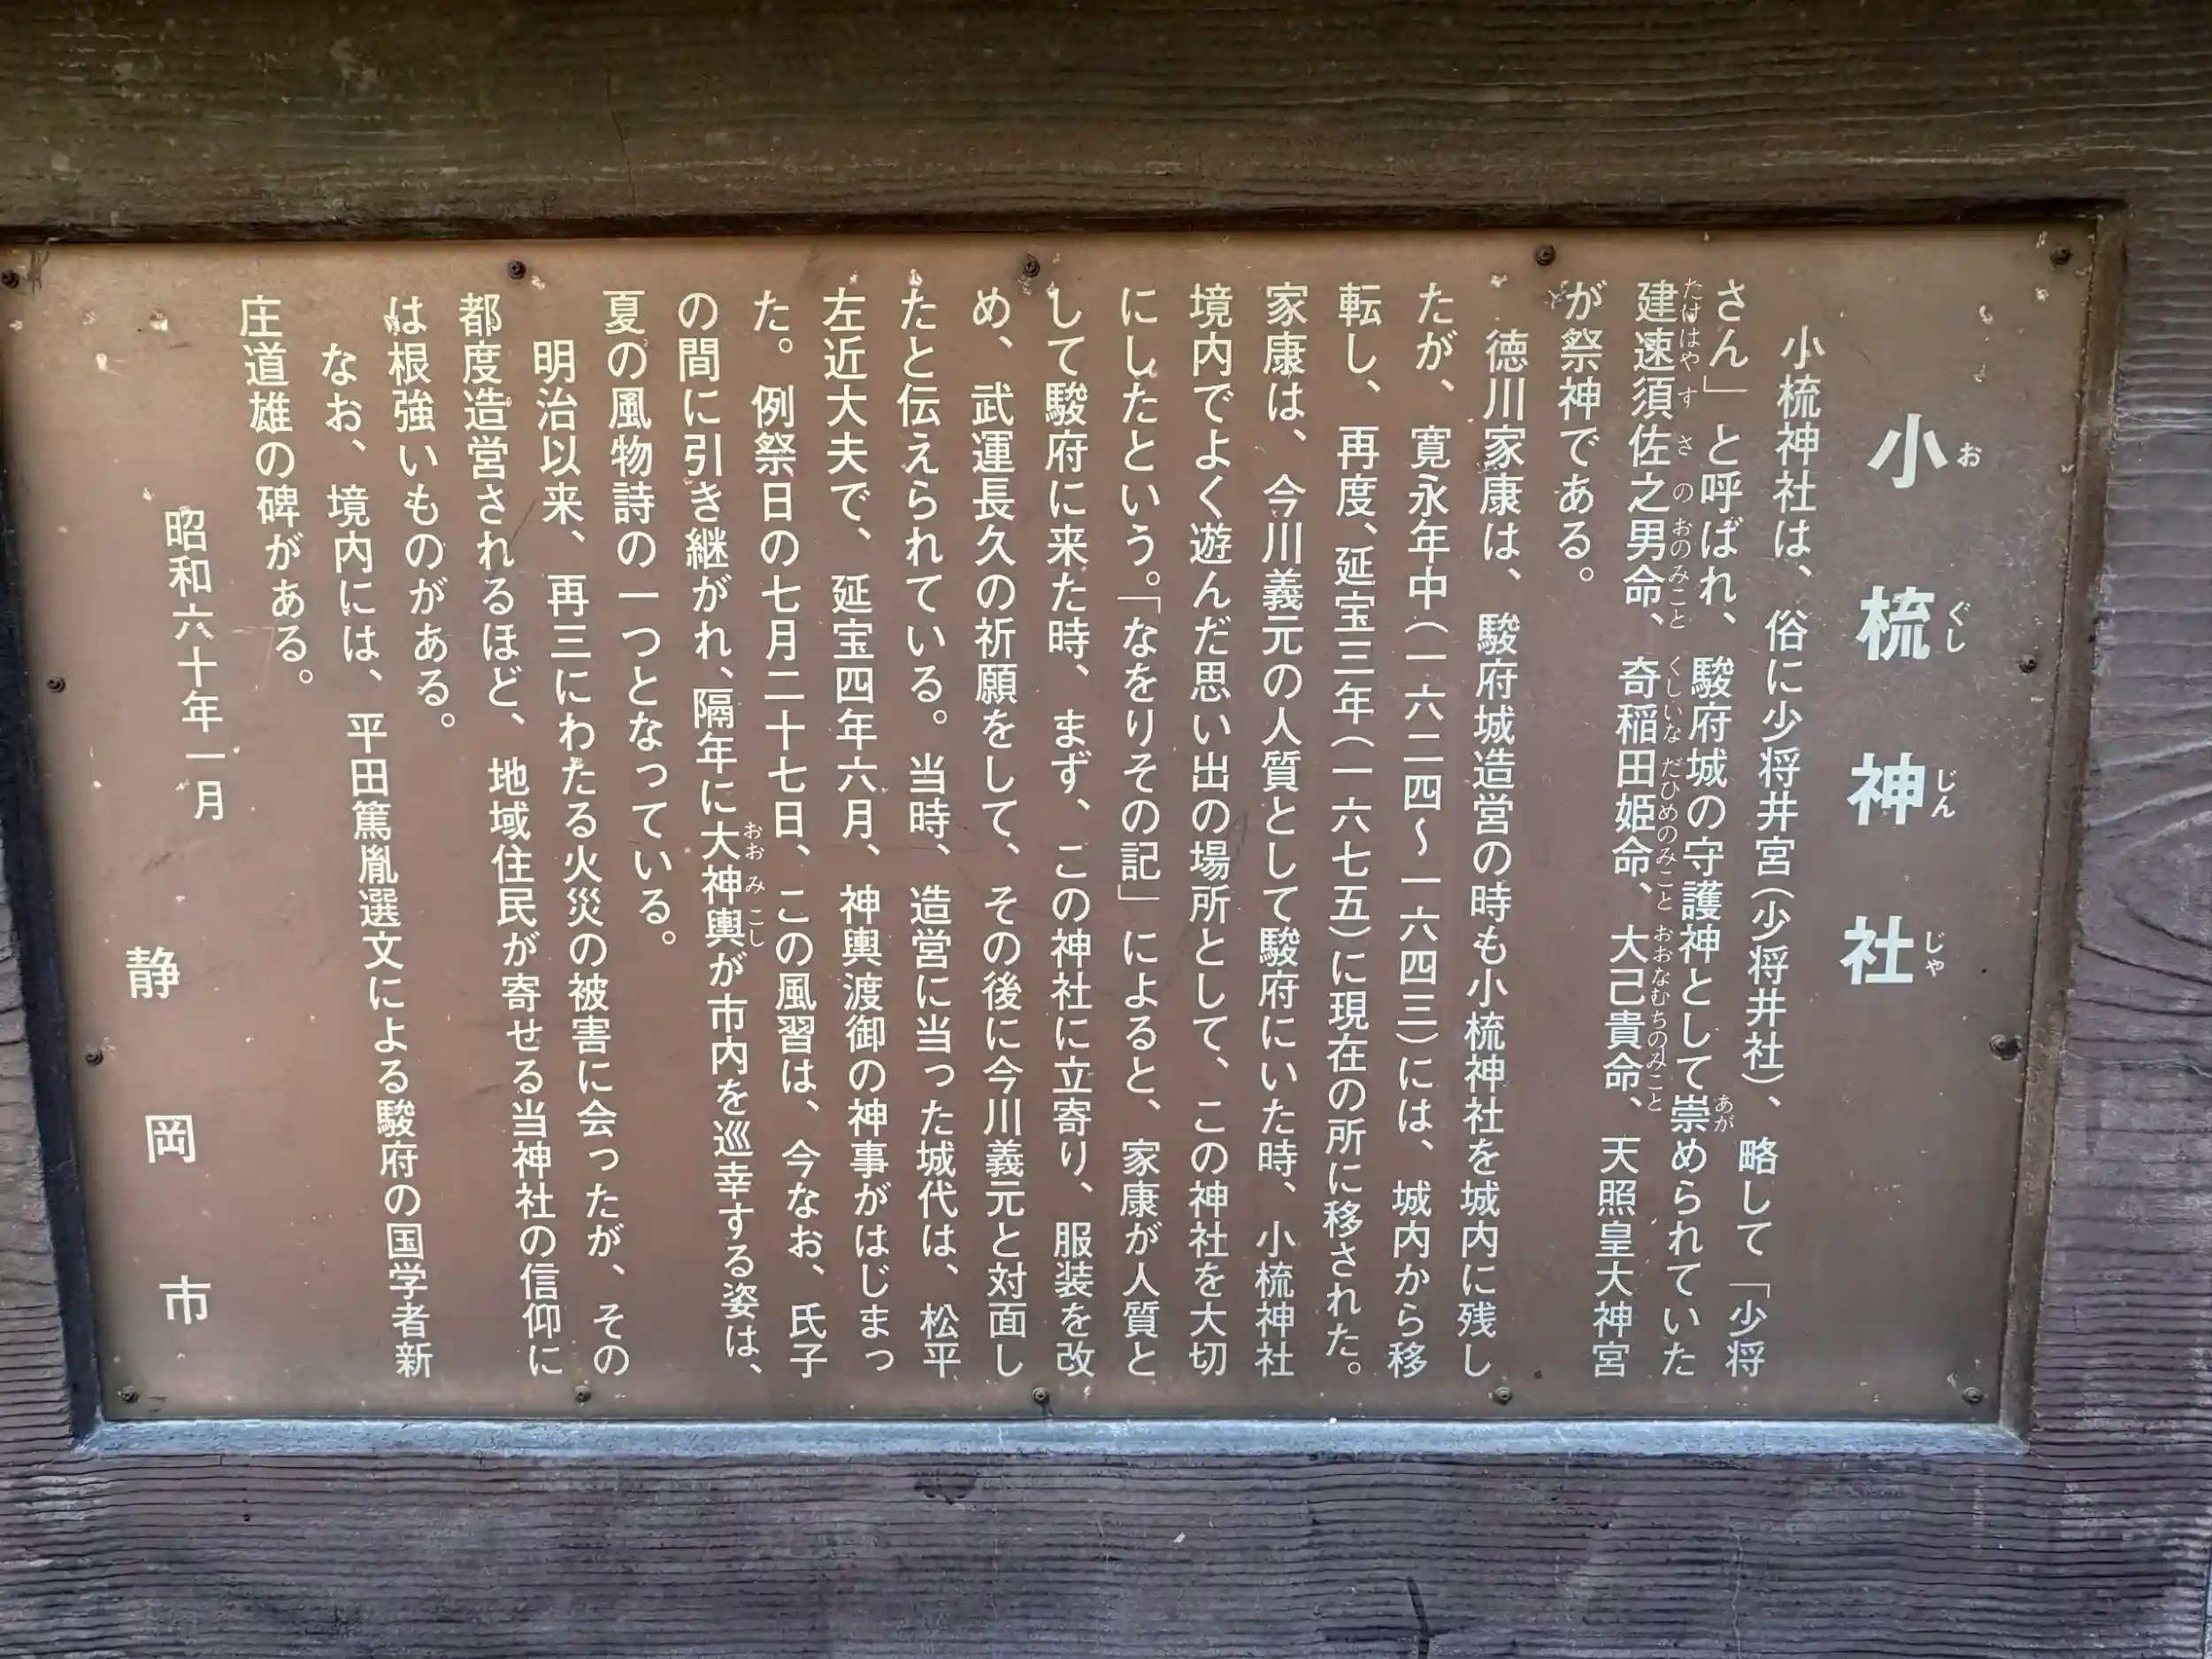 小梳神社
おぐしじんじゃ
小梳神社は、俗に少将井宮(少将井社)、略して「少将
さん」と呼ばれ、駿府城の守護神として崇められていた
あが
建速須佐之男命、奇稲田姫命、大己貴命、天照皇大神宮
たけはやすさのおのみこと くしいなだひめのみこと おおなむちのみこと
が祭神である。
徳川家康は、駿府城造営の時も小梳神社を城内に残し
たが、寛永年中(一六二四〜一六四三)には、城内から移
転し、再度、延宝三年(一六七五)に現在の所に移された。
家康は、今川義元の人質として駿府にいた時、小梳神社
境内でよく遊んだ思い出の場所として、この神社を大切
にしたという。「なをりその記」によると、家康が人質と
して駿府に来た時、まず、この神社に立寄り、服装を改
め、武運長久の祈願をして、その後に今川義元と対面し
たと伝えられている。当時、造営に当った城代は、松平
左近大夫で、延宝四年六月、神輿渡御の神事がはじまっ
た。例祭日の七月二十七日、この風習は、今なお、氏子
の間に引き継がれ、隔年に大神輿が市内を巡幸する姿は、
おおみこし
夏の風物詩の一つとなっている。
明治以来、再三にわたる火災の被害に会ったが、その
都度造営されるほど、地域住民が寄せる当神社の信仰に
は根強いものがある。
なお、境内には、平田篤胤選文による駿府の国学者新
庄道雄の碑がある。
昭和六十年一月
静岡市